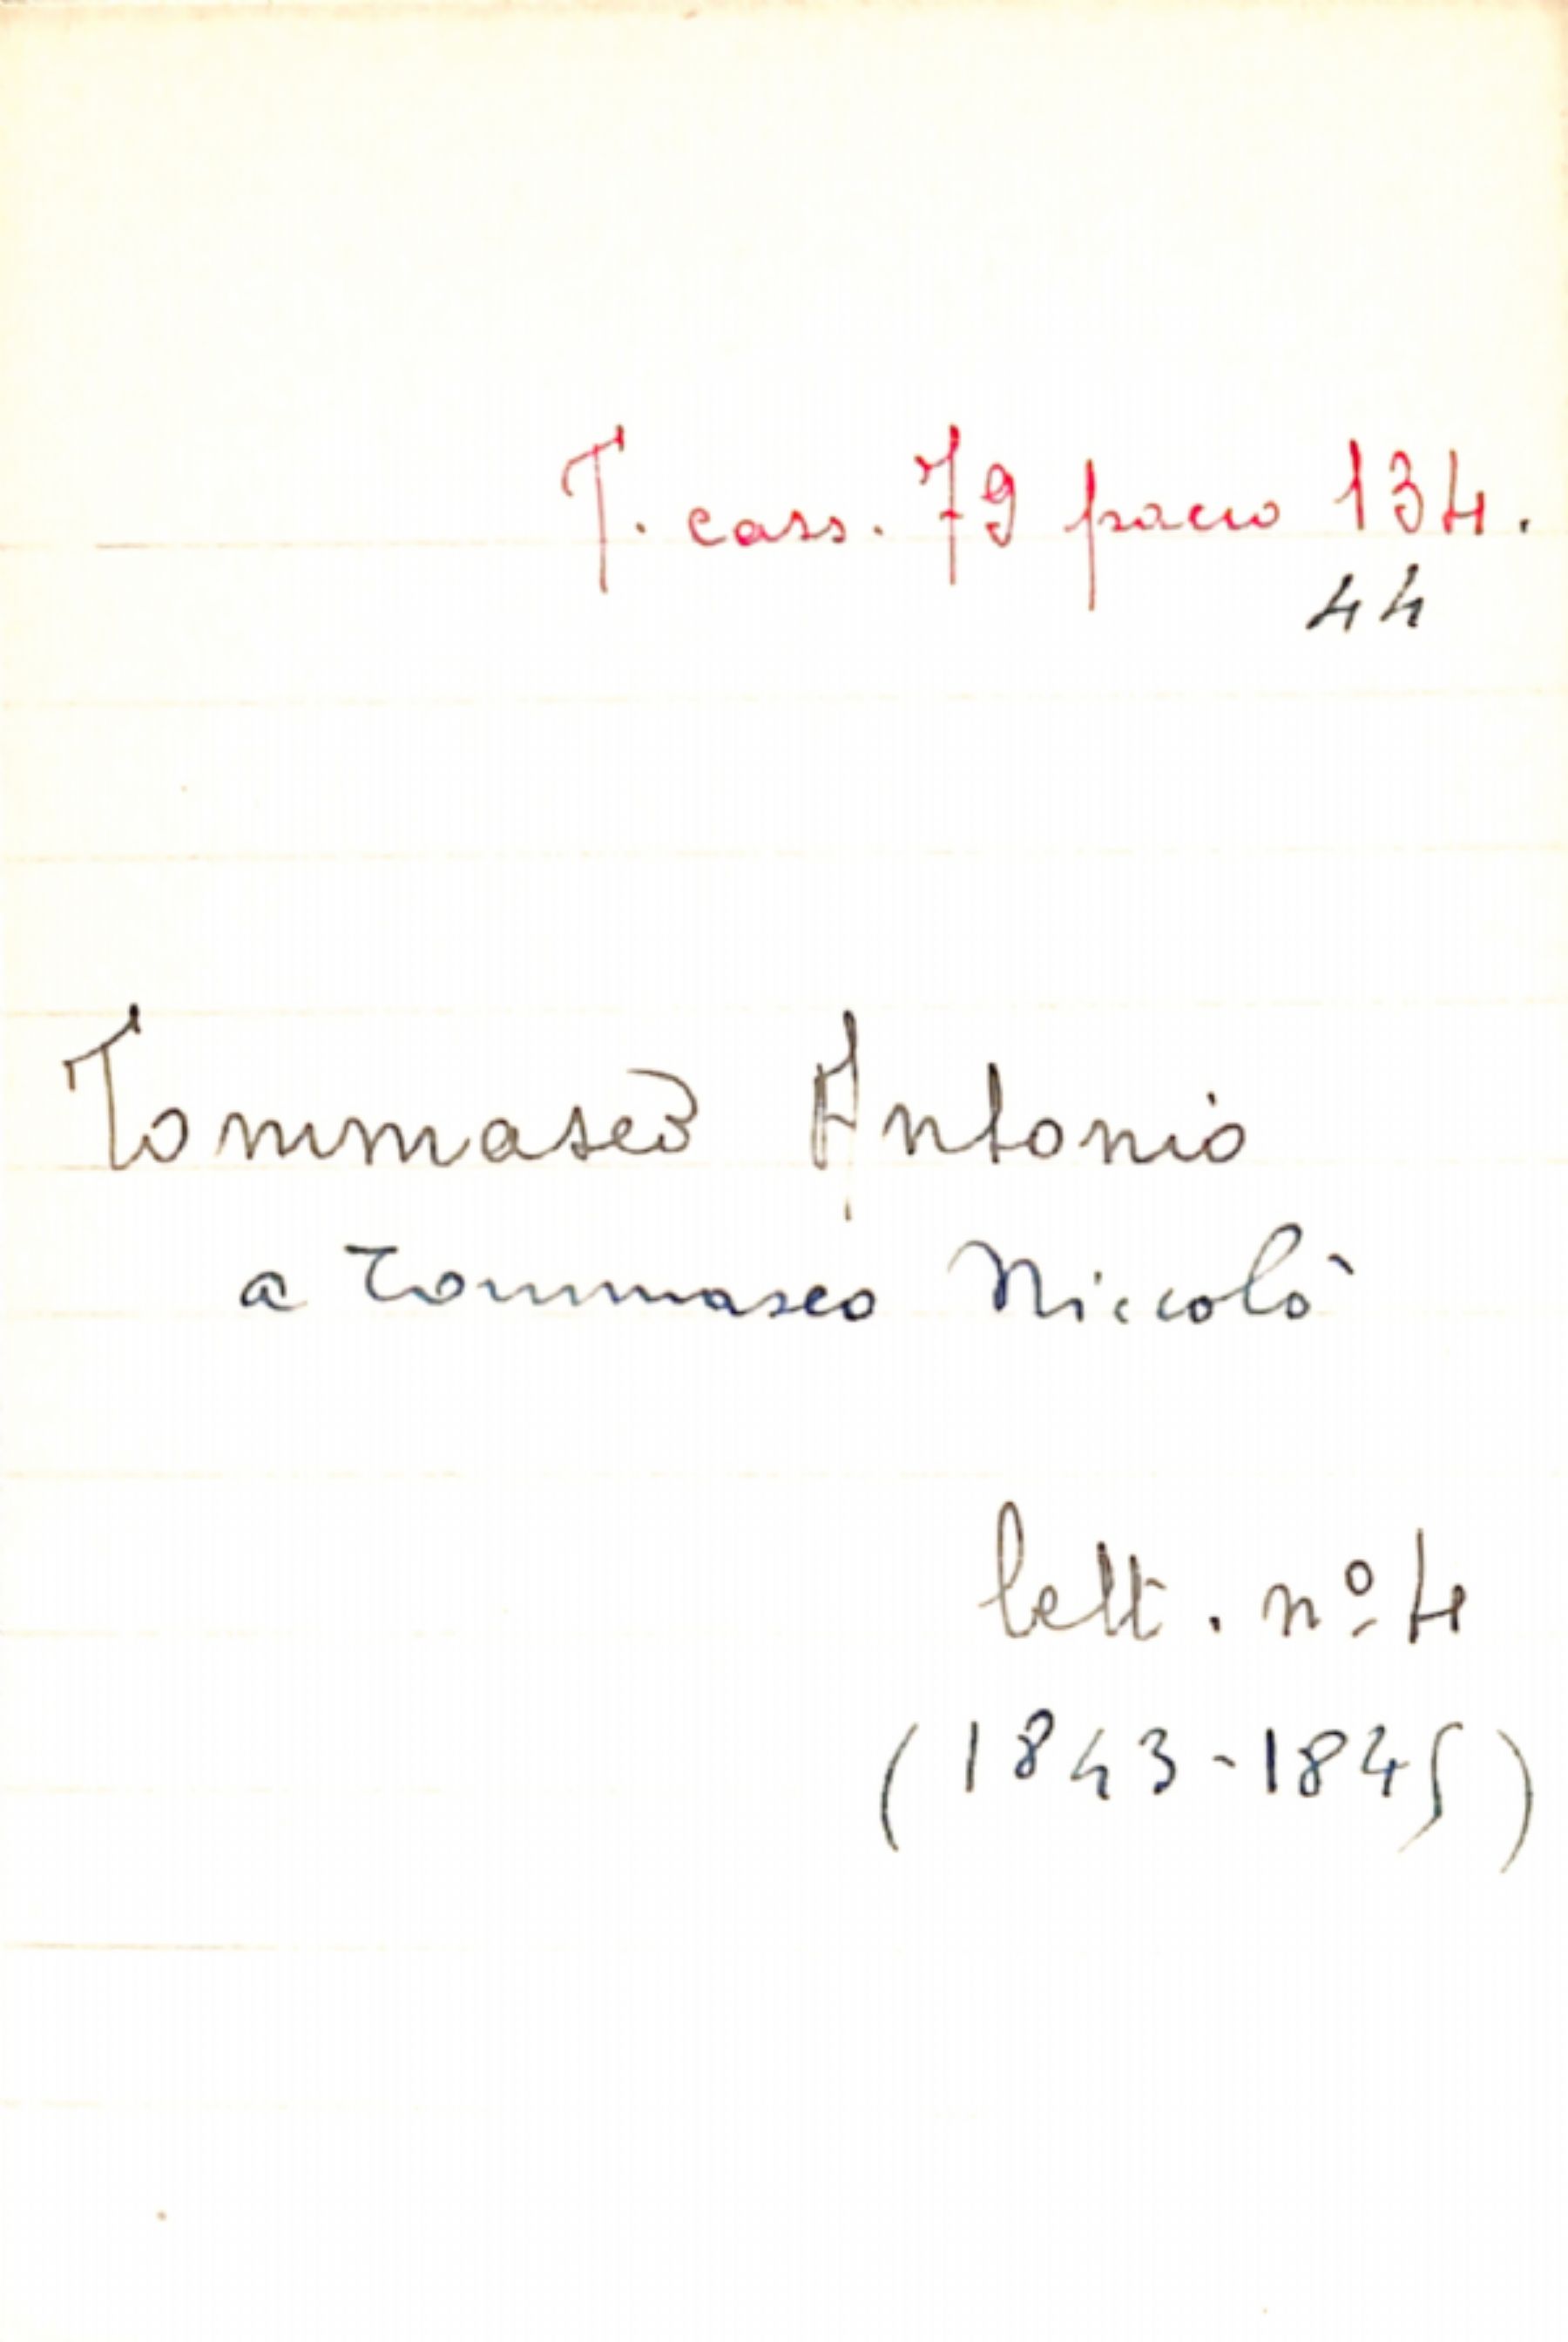 T. cass. 79 pacco 134.
44
Tommaseo Antonio
a Tommaseo Niccolò
lett. nº 4
(1843-1845)